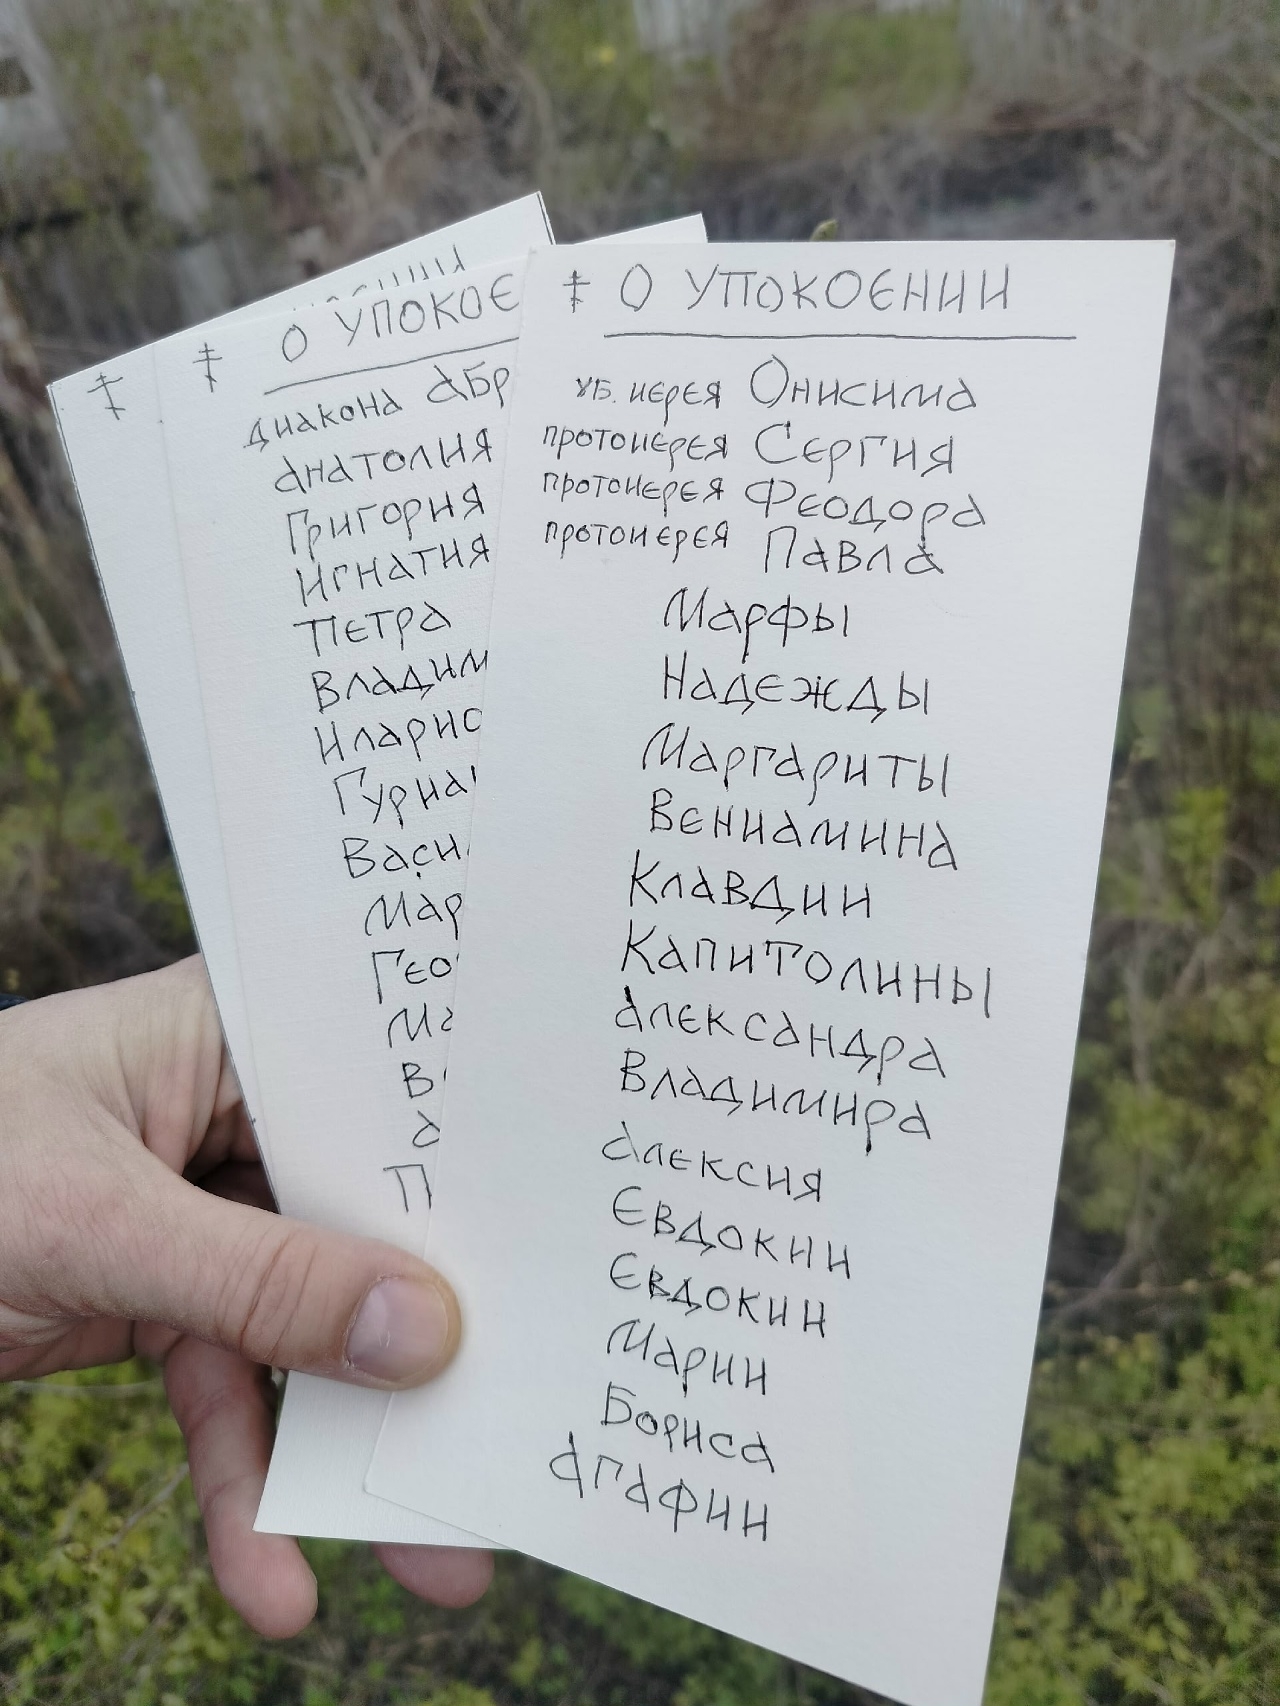 О УПОКОЕНИИ
УБ. ИЕРЕЯ Онисима
ПРОТОИЕРЕЯ Сергия
ПРОТОИЕРЕЯ Феодора
ПРОТОИЕРЕЯ Павла
Марфы
Надежды
Маргариты
Вениамина
Клавдии
Капитолины
Александра
Владимира
Алексия
Евдокии
Евдокии
Марии
Бориса
Агафии
О УПОКОЕ
ДИАКОНА АБР
Анатолия
Григория
Игнатия
Петра
Владим
Иларио
Гуриа
Васи
Мар
Гео
Ма
В
а
П